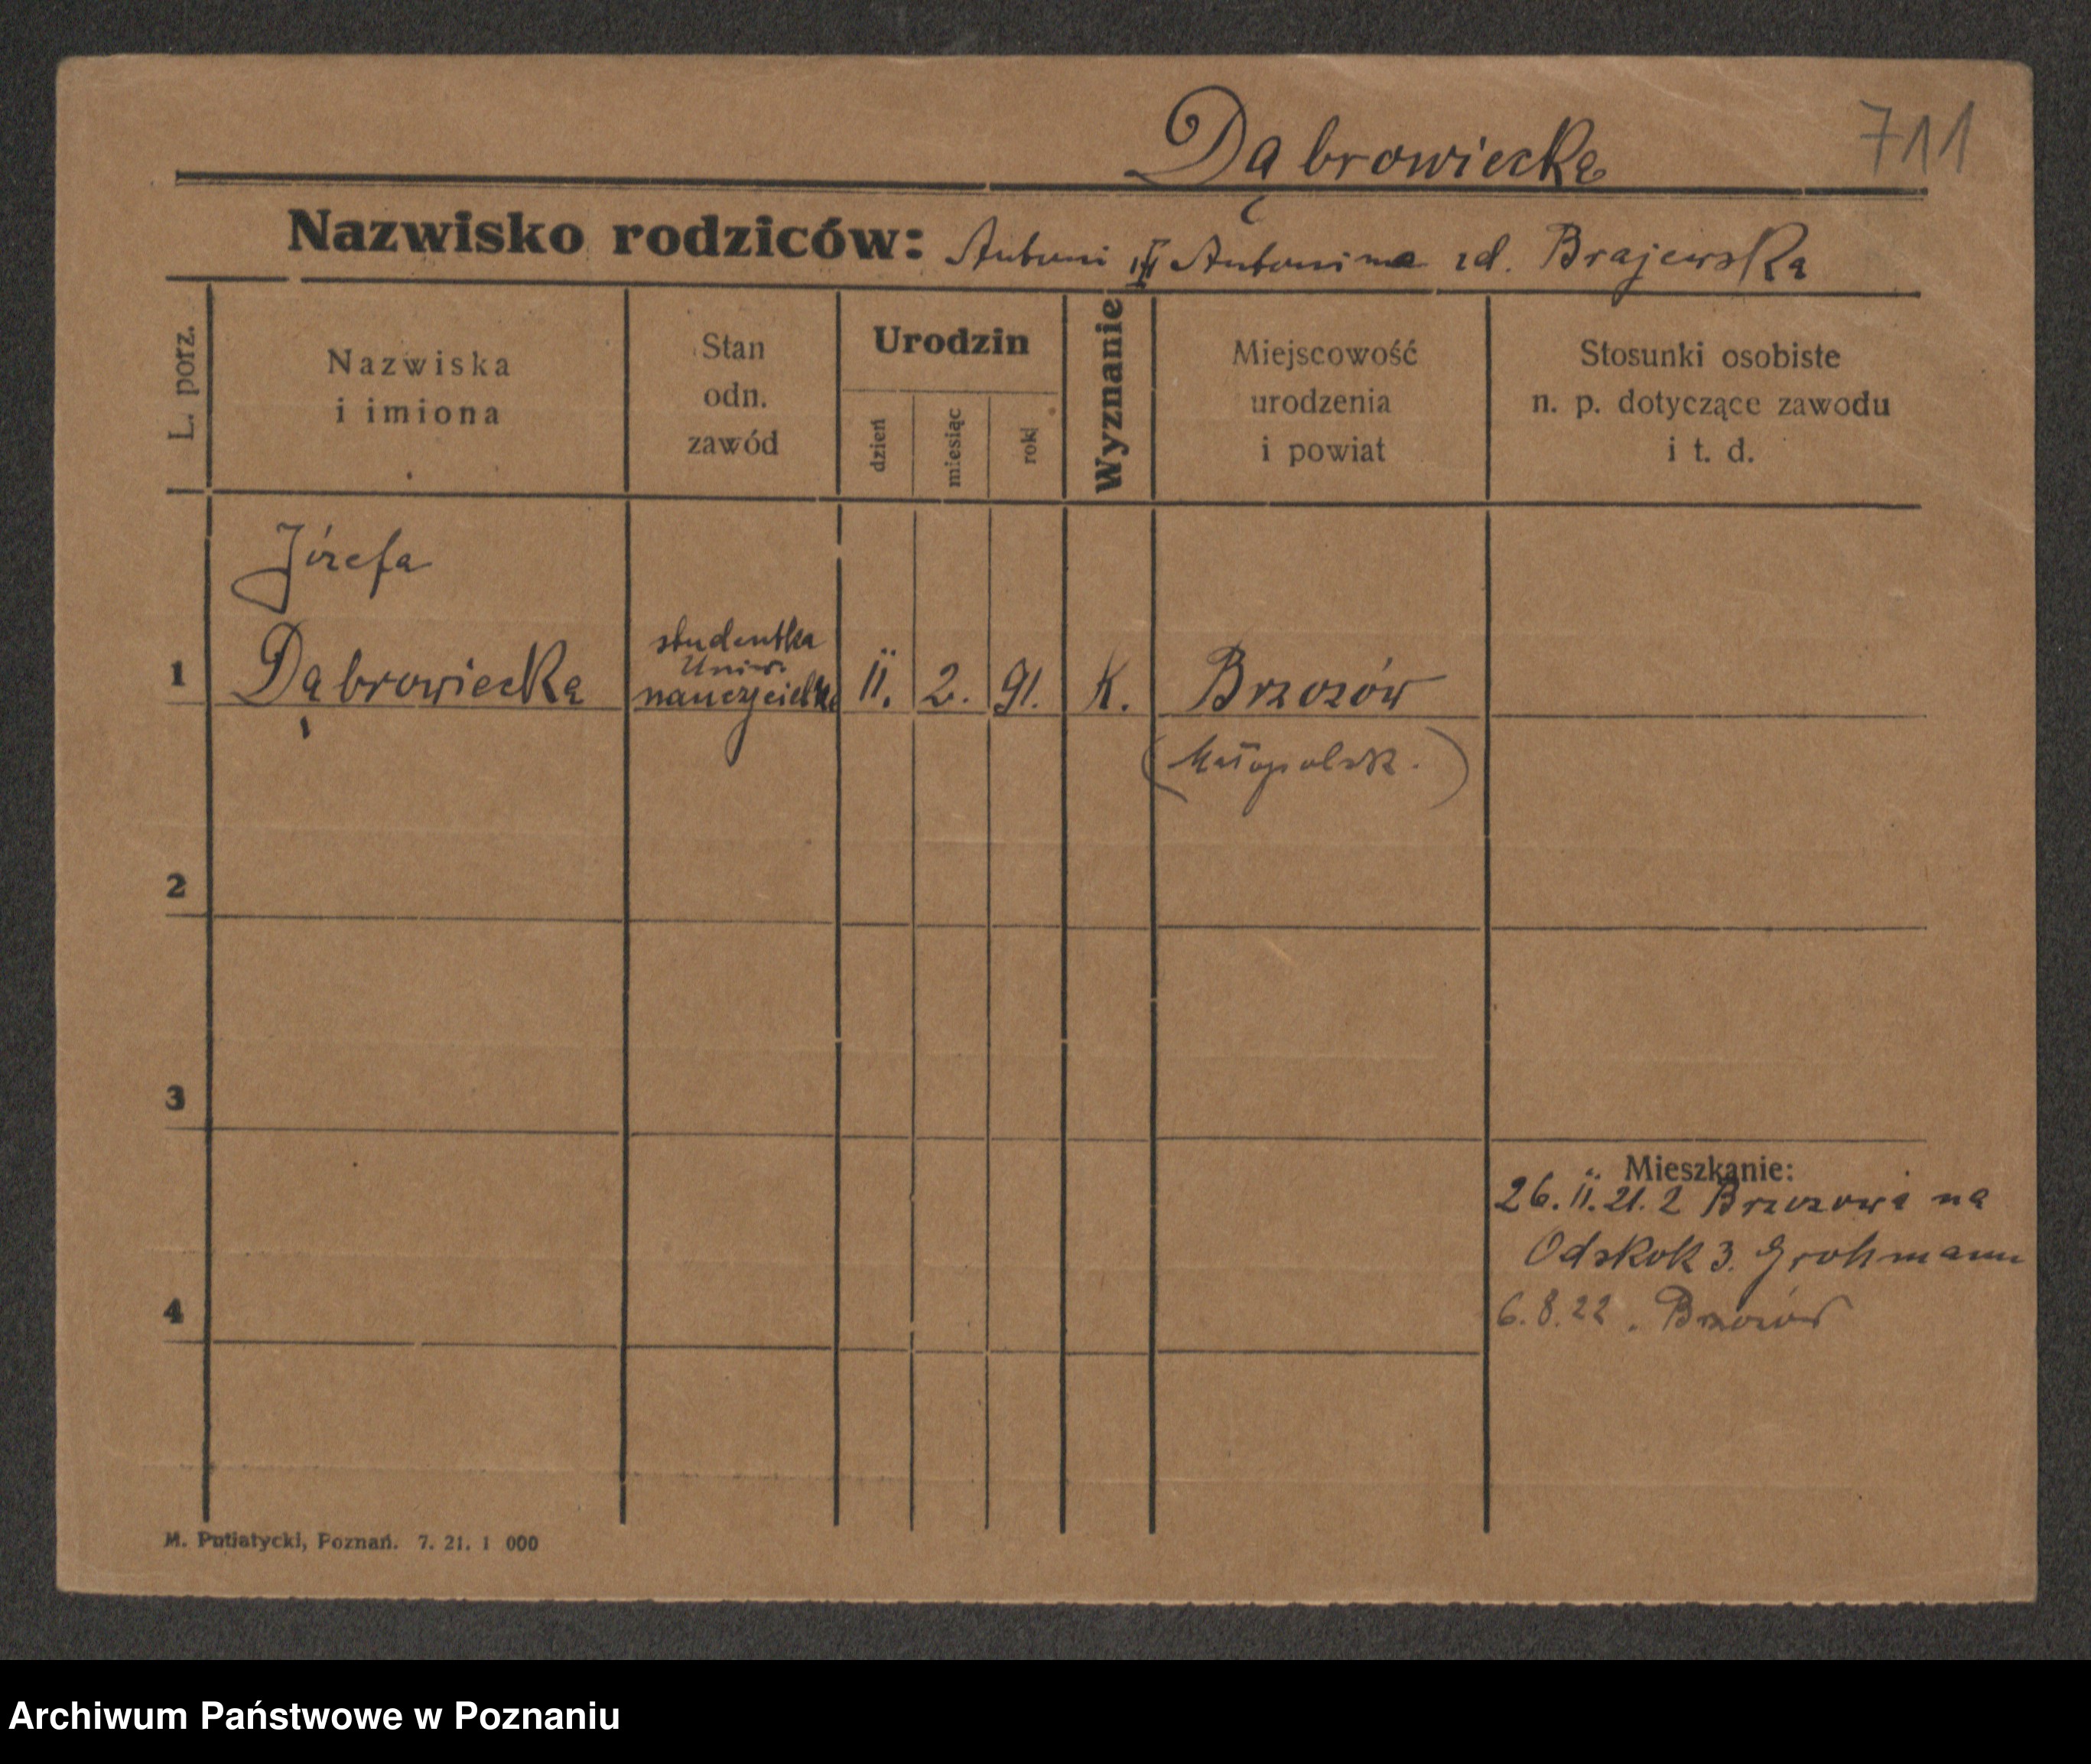 Dąbrowiecka
711
Nazwisko rodziców: Antoni i Antonina zd. Brajewska
L. porz.
Nazwiska
i imiona
Stan
odn.
zawód
Urodzin
dzień
miesiąc
rok
Wyznanie
Miejscowość
urodzenia
i powiat
Stosunki osobiste
n. p. dotyczące zawodu
i t. d.
Józefa
studentka
Uniw.
1 Dąbrowiecka nauczycielka 11. 2. 91. K. Brzozów
(Małopolsk.)
2
3
Mieszkanie:
26. II. 21. z Brzozowa na
Odskok 3. Grohmann
4
6. 8. 22. Brzozów
M. Putiatycki, Poznań. 7. 21. 1 000
Archiwum Państwowe w Poznaniu